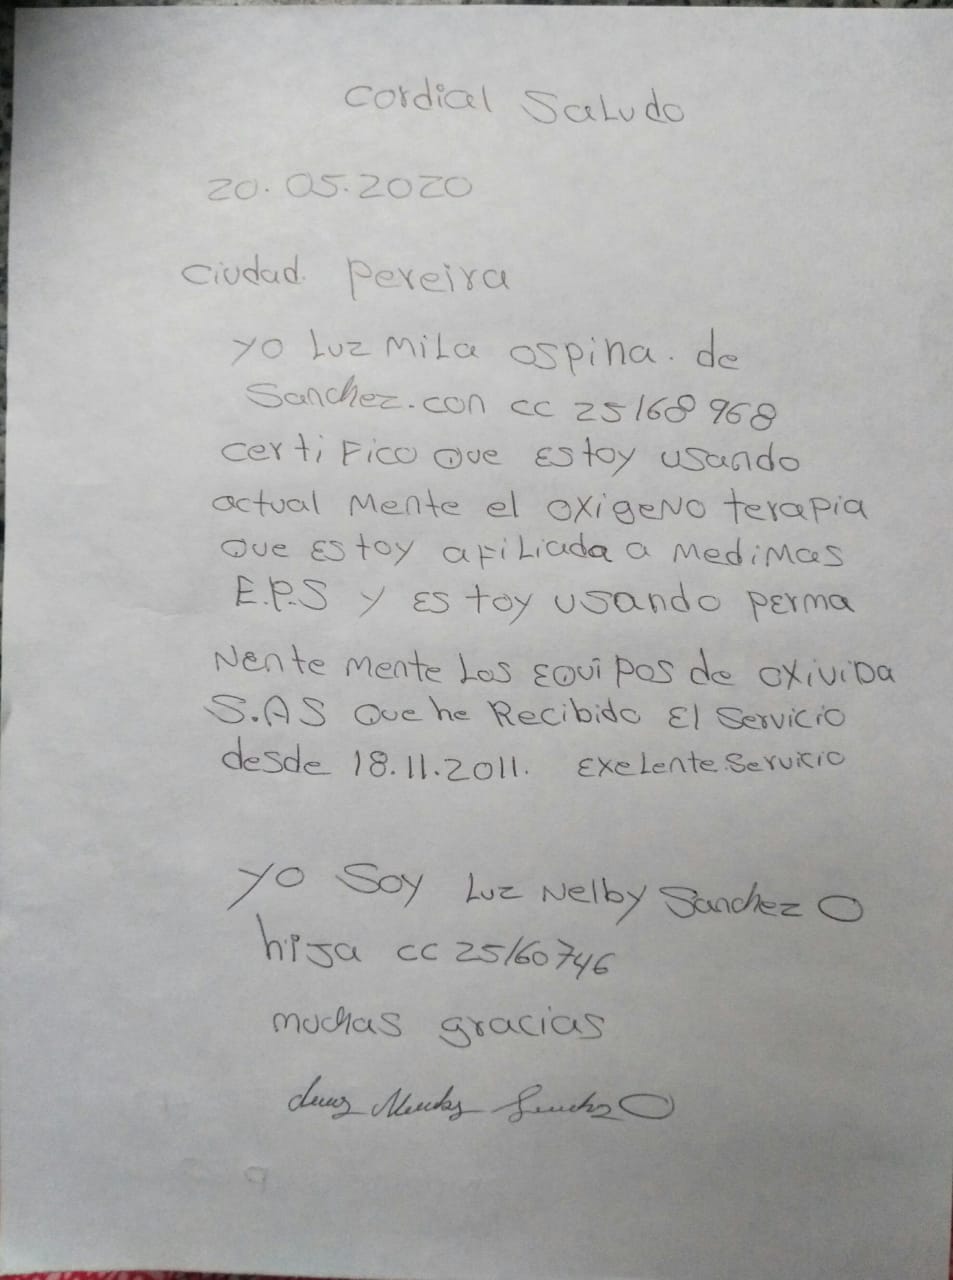 Cordial Saludo
20.05.2020
Ciudad. Pereira
yo Luz Mila ospina. de
Sanchez. con cc 25168968
certifico que Estoy usando
actual Mente el oxigeno terapia
que Estoy afiliada a Medimas
E.P.S y Estoy usando perma
Nente mente Los Equipos de oxiviDa
S.A.S que he Recibido El Servicio
desde 18.11.2011. Exelente. Servicio
yo Soy Luz Nelby Sanchez O
hija cc 25160746
muchas gracias
Luz Nelby Sanchez O